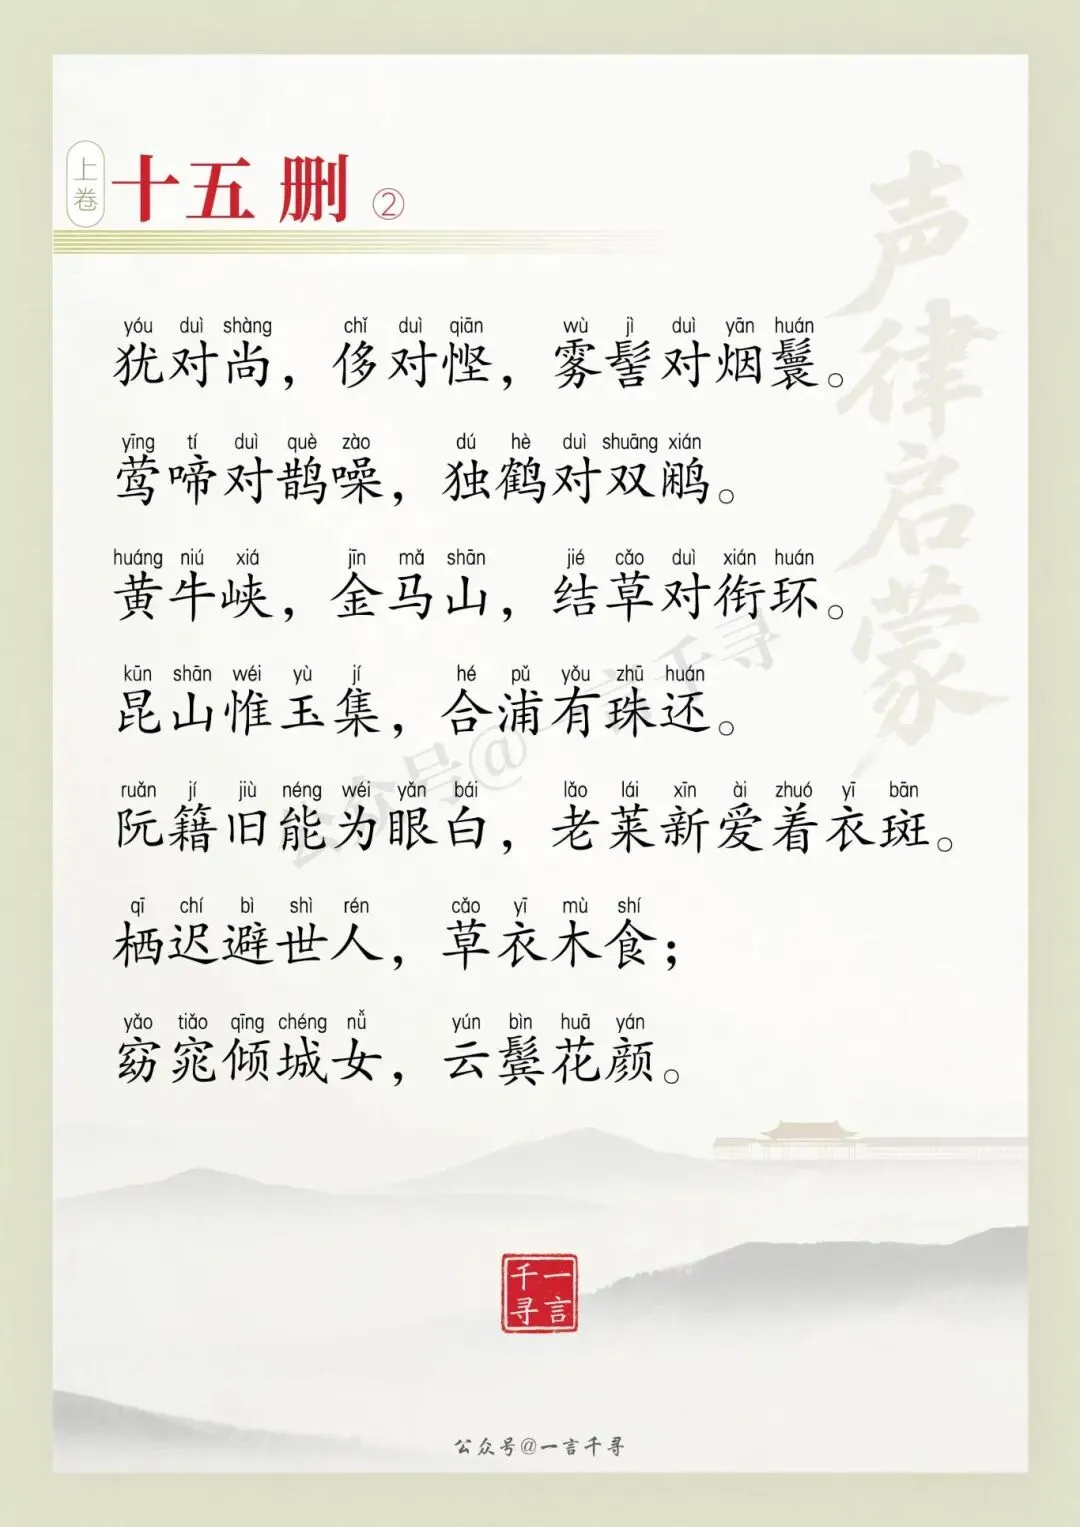 上卷
十五 删 ②
声律启蒙
yóu duì shàng chǐ duì qiān wù jì duì yān huán
犹对尚，侈对悭，雾髻对烟鬟。
yīng tí duì què zào dú hè duì shuāng xián
莺啼对鹊噪，独鹤对双鹇。
huáng niú xiá jīn mǎ shān jié cǎo duì xián huán
黄牛峡，金马山，结草对衔环。
kūn shān wéi yù jí hé pǔ yǒu zhū huán
昆山惟玉集，合浦有珠还。
ruǎn jí jiù néng wéi yǎn bái lǎo lái xīn ài zhuó yī bān
阮籍旧能为眼白，老莱新爱着衣斑。
qī chí bì shì rén cǎo yī mù shí
栖迟避世人，草衣木食；
yǎo tiǎo qīng chéng nǚ yún bìn huā yán
窈窕倾城女，云鬓花颜。
公众号@一言千寻
一言千寻
公众号@一言千寻